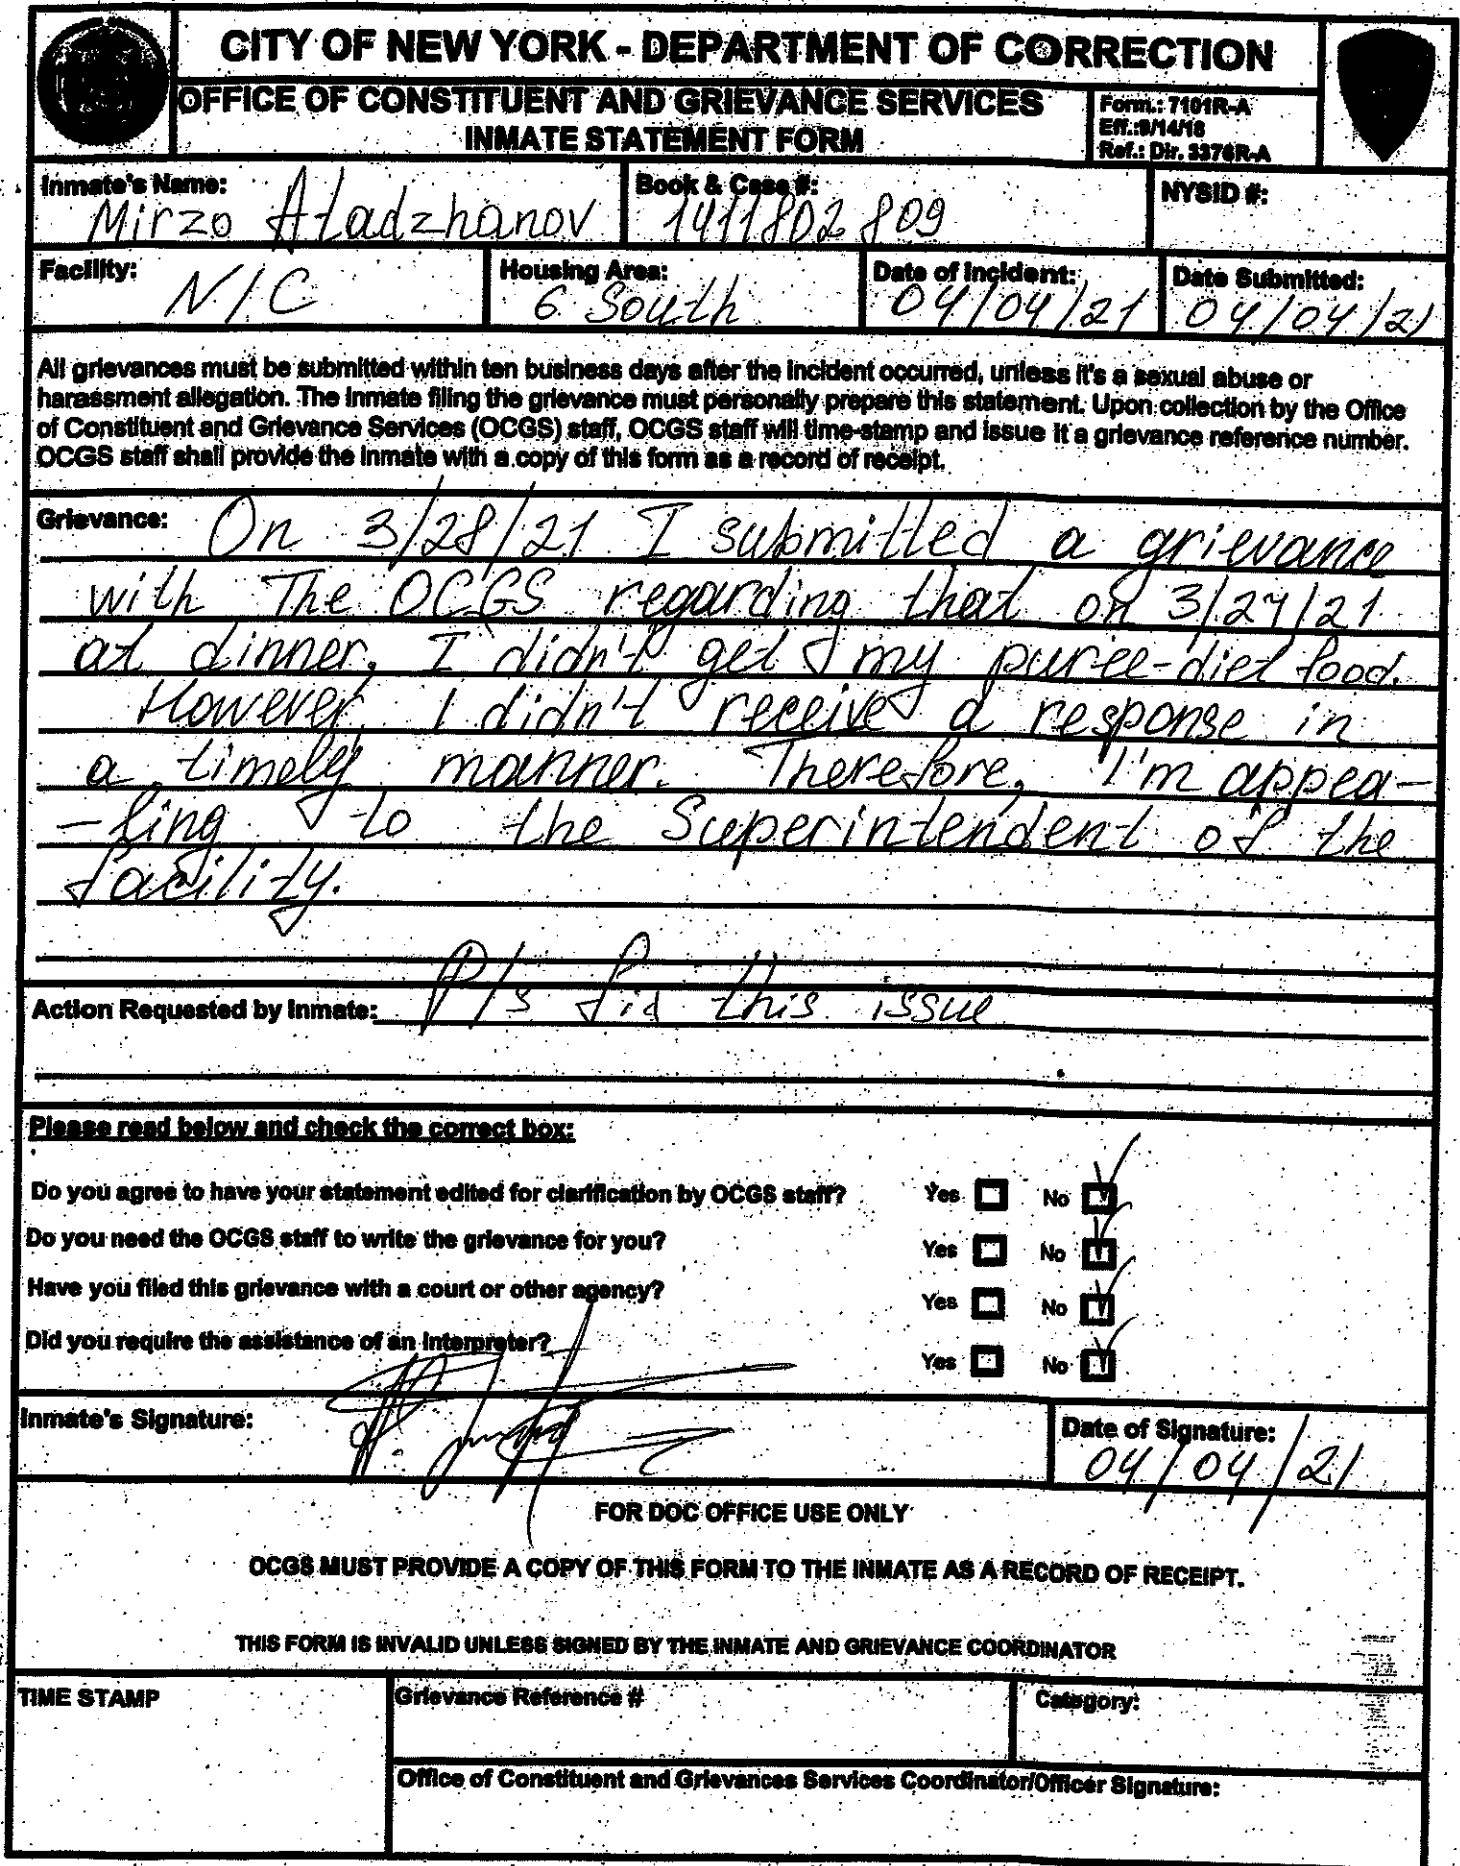 CITY OF NEW YORK - DEPARTMENT OF CORRECTION
OFFICE OF CONSTITUENT AND GRIEVANCE SERVICES
INMATE STATEMENT FORM
Form.: 7101R-A
Eff.:9/14/18
Ref.: Dir. 3376R-A
Inmate's Name:
Mirzo Atadzhanov
Book & Case #:
1411802809
NYSID #:
Facility:
NIC
Housing Area:
6 South
Date of Incident:
04/04/21
Date Submitted:
04/04/21
All grievances must be submitted within ten business days after the incident occurred, unless it's a sexual abuse or
harassment allegation. The inmate filing the grievance must personally prepare this statement. Upon collection by the Office
of Constituent and Grievance Services (OCGS) staff, OCGS staff will time-stamp and issue it a grievance reference number.
OCGS staff shall provide the inmate with a copy of this form as a record of receipt.
Grievance: On 3/28/21 I submitted a grievance
with The OCGS regarding that on 3/27/21
at dinner, I didn't get my puree-diet food.
However, I didn't receive a response in
a timely manner. Therefore, I'm appea-
-ling to the Superintendent of the
facility.
Action Requested by Inmate: Pls fix this issue
Please read below and check the correct box:
Do you agree to have your statement edited for clarification by OCGS staff? Yes No
Do you need the OCGS staff to write the grievance for you? Yes No
Have you filed this grievance with a court or other agency? Yes No
Did you require the assistance of an interpreter? Yes No
Inmate's Signature:
Date of Signature:
04/04/21
FOR DOC OFFICE USE ONLY
OCGS MUST PROVIDE A COPY OF THIS FORM TO THE INMATE AS A RECORD OF RECEIPT.
THIS FORM IS INVALID UNLESS SIGNED BY THE INMATE AND GRIEVANCE COORDINATOR
TIME STAMP
Grievance Reference #
Category:
Office of Constituent and Grievances Services Coordinator/Officer Signature: